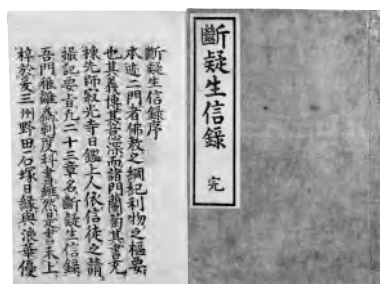 斷疑生信錄 完
斷疑生信錄序
本迹二門者佛教之綱紀利物之樞要
也其義博其意深而諸門蘭菊其書充
棟先師寂光寺日鑑上人依信徒之請
撮記要旨凡二十三章名斷疑生信錄
吾門雅離為剞度科書雖然是書未上
梓於爰三州野田石塚日緣與浪華優